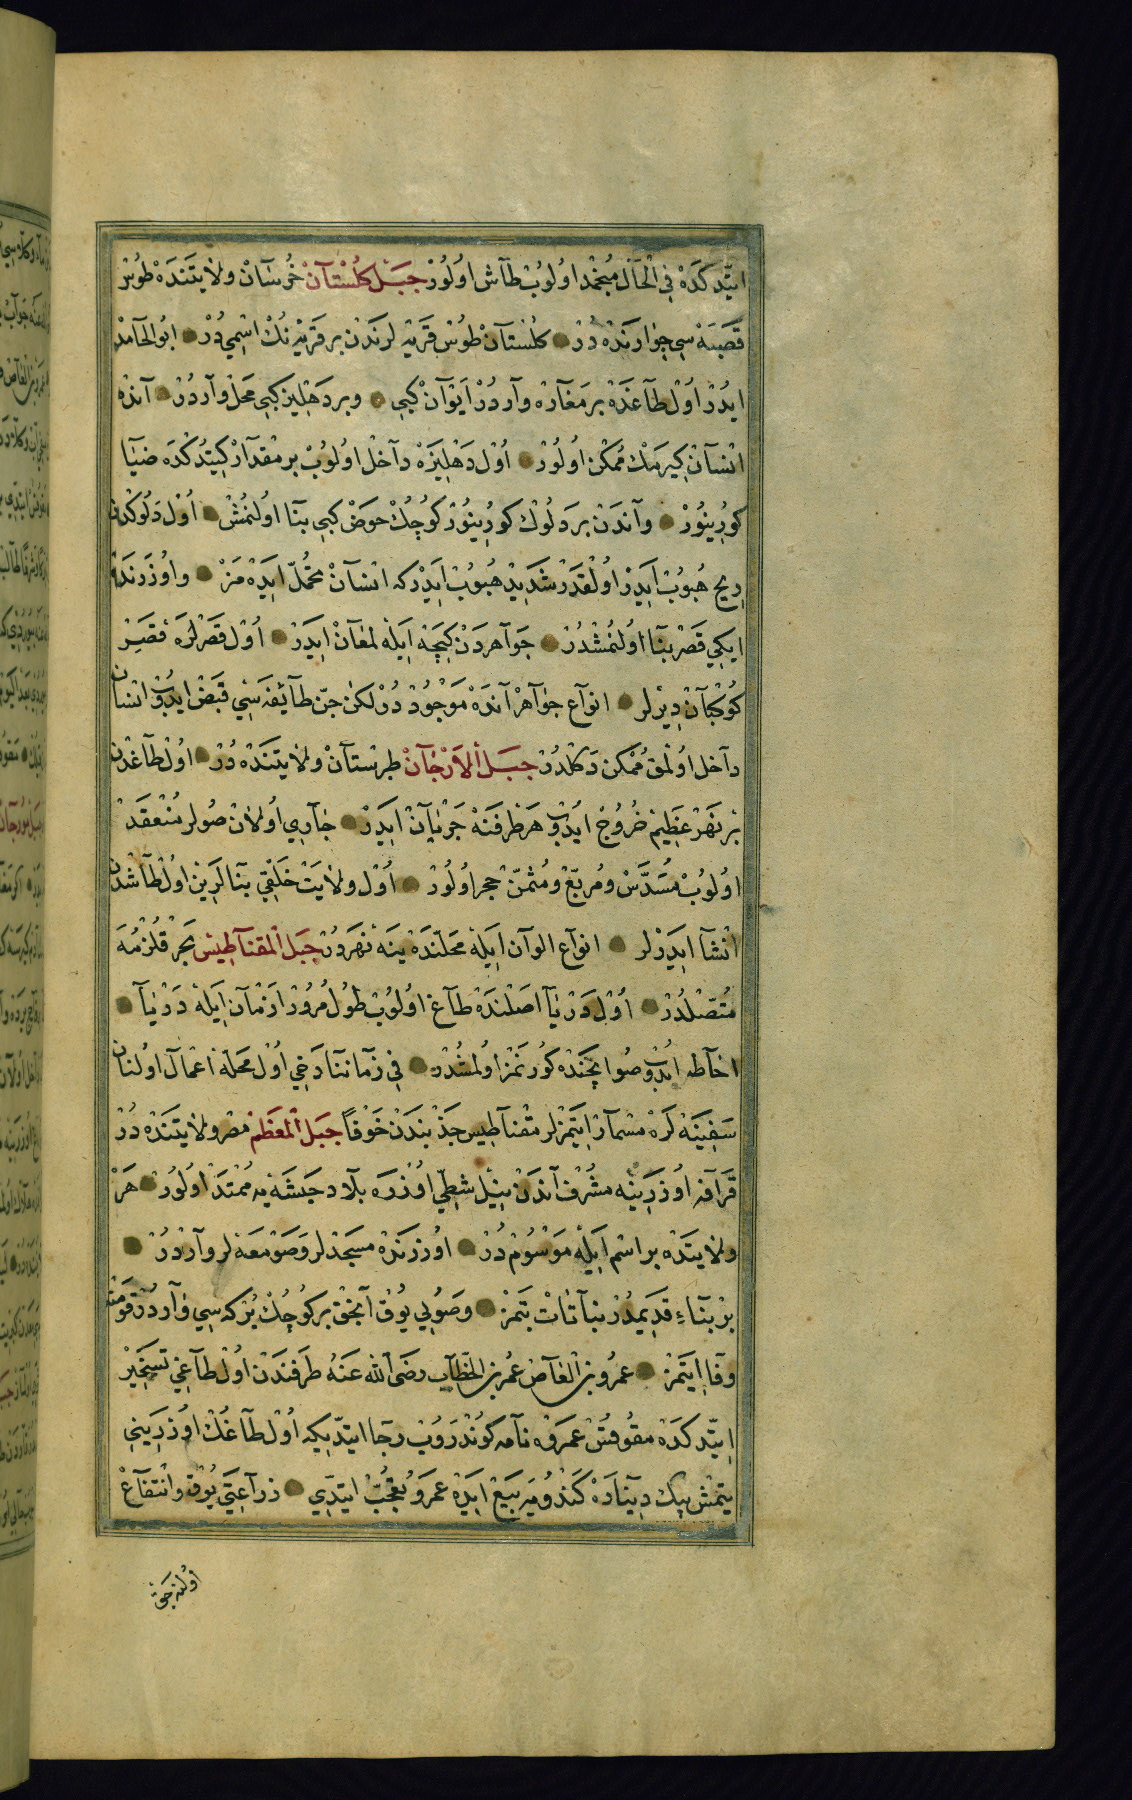 ايتدكده في الحال منجمد اولوب طاش اولور جبل كلستان خرسان ولايتنده طوس
قصبه سي جوارنده در كلستان طوس قريه لرندن بر قريه نك اسمي در ابو الحامد
ايدر اول طاغده بر مغاره وآردر ايوان كبي وبر دهليز كبي محل وآردر آنده
انسان كيرمك ممكن اولور اول دهليزه داخل اولوب بر مقدار كيتدكده ضيا
كورينور وآندن بر دلوك كورينور كوچك حوض كبي بنا اولنمش اول دلوكدن
ريح هبوب ايدر اولقدر شديد هبوب ايدر كه انسان تحمل ايده مز واوزرنده
ايكي قصر بنا اولنمشدر جواهردن كيجه ايله لمعان ايدر اول قصرلره قصر
كوكبان ديرلر انواع جواهر آنده موجود در لكن جن طائفه سي قبض ايدوب انسان
داخل اولمق ممكن دكلدر جبل الارجان طبرستان ولايتنده در اول طاغدن
بر نهر عظيم خروج ايدوب هر طرفنه جريان ايدر جاري اولان صولر منعقد
اولوب مسدس ومربع ومثمن حجر اولور اول ولايت خلقي بنالرين اول طاشدن
انشا ايدرلر انواع الوان ايله محلنده ينه نهردر جبل المقناطيس بحر قلزمه
متصلدر اول دريا اصلنده طاغ اولوب طول مرور ازمان ايله دريا
احاطه ايدوب صو ايچنده كورنمز اولمشدر في زماننا دخي اول محله اعمال اولنان
سفينه لره مسمار ايتمزلر مقناطيس جذبندن خوفا جبل المعظم مصر ولايتنده در
قرافه اوزرينه مشرف آندن نيل شطي اوزره بلاد حبشه يه ممتد اولور هر
ولايتده بر اسم ايله موسوم در اوزرنده مسجدلر وصومعه لر وآردر
بر بناء قديمدر نباتات بتمز وصويي يوق آنجق بر كوچك بركه سي وآردر قومنه
وفا ايتمز عمرو بن العاص عمر بن الخطاب رضى الله عنه طرفندن اول طاغي تسخير
ايتدكده مقوقس عمروه نامه كوندروب رجا ايتديكه اول طاغك اوزريني
يتمش بيك ديناره كندويه بيع ايده عمرو تعجب ايتدي زراعتي يوق وانتفاع
اولنه جق